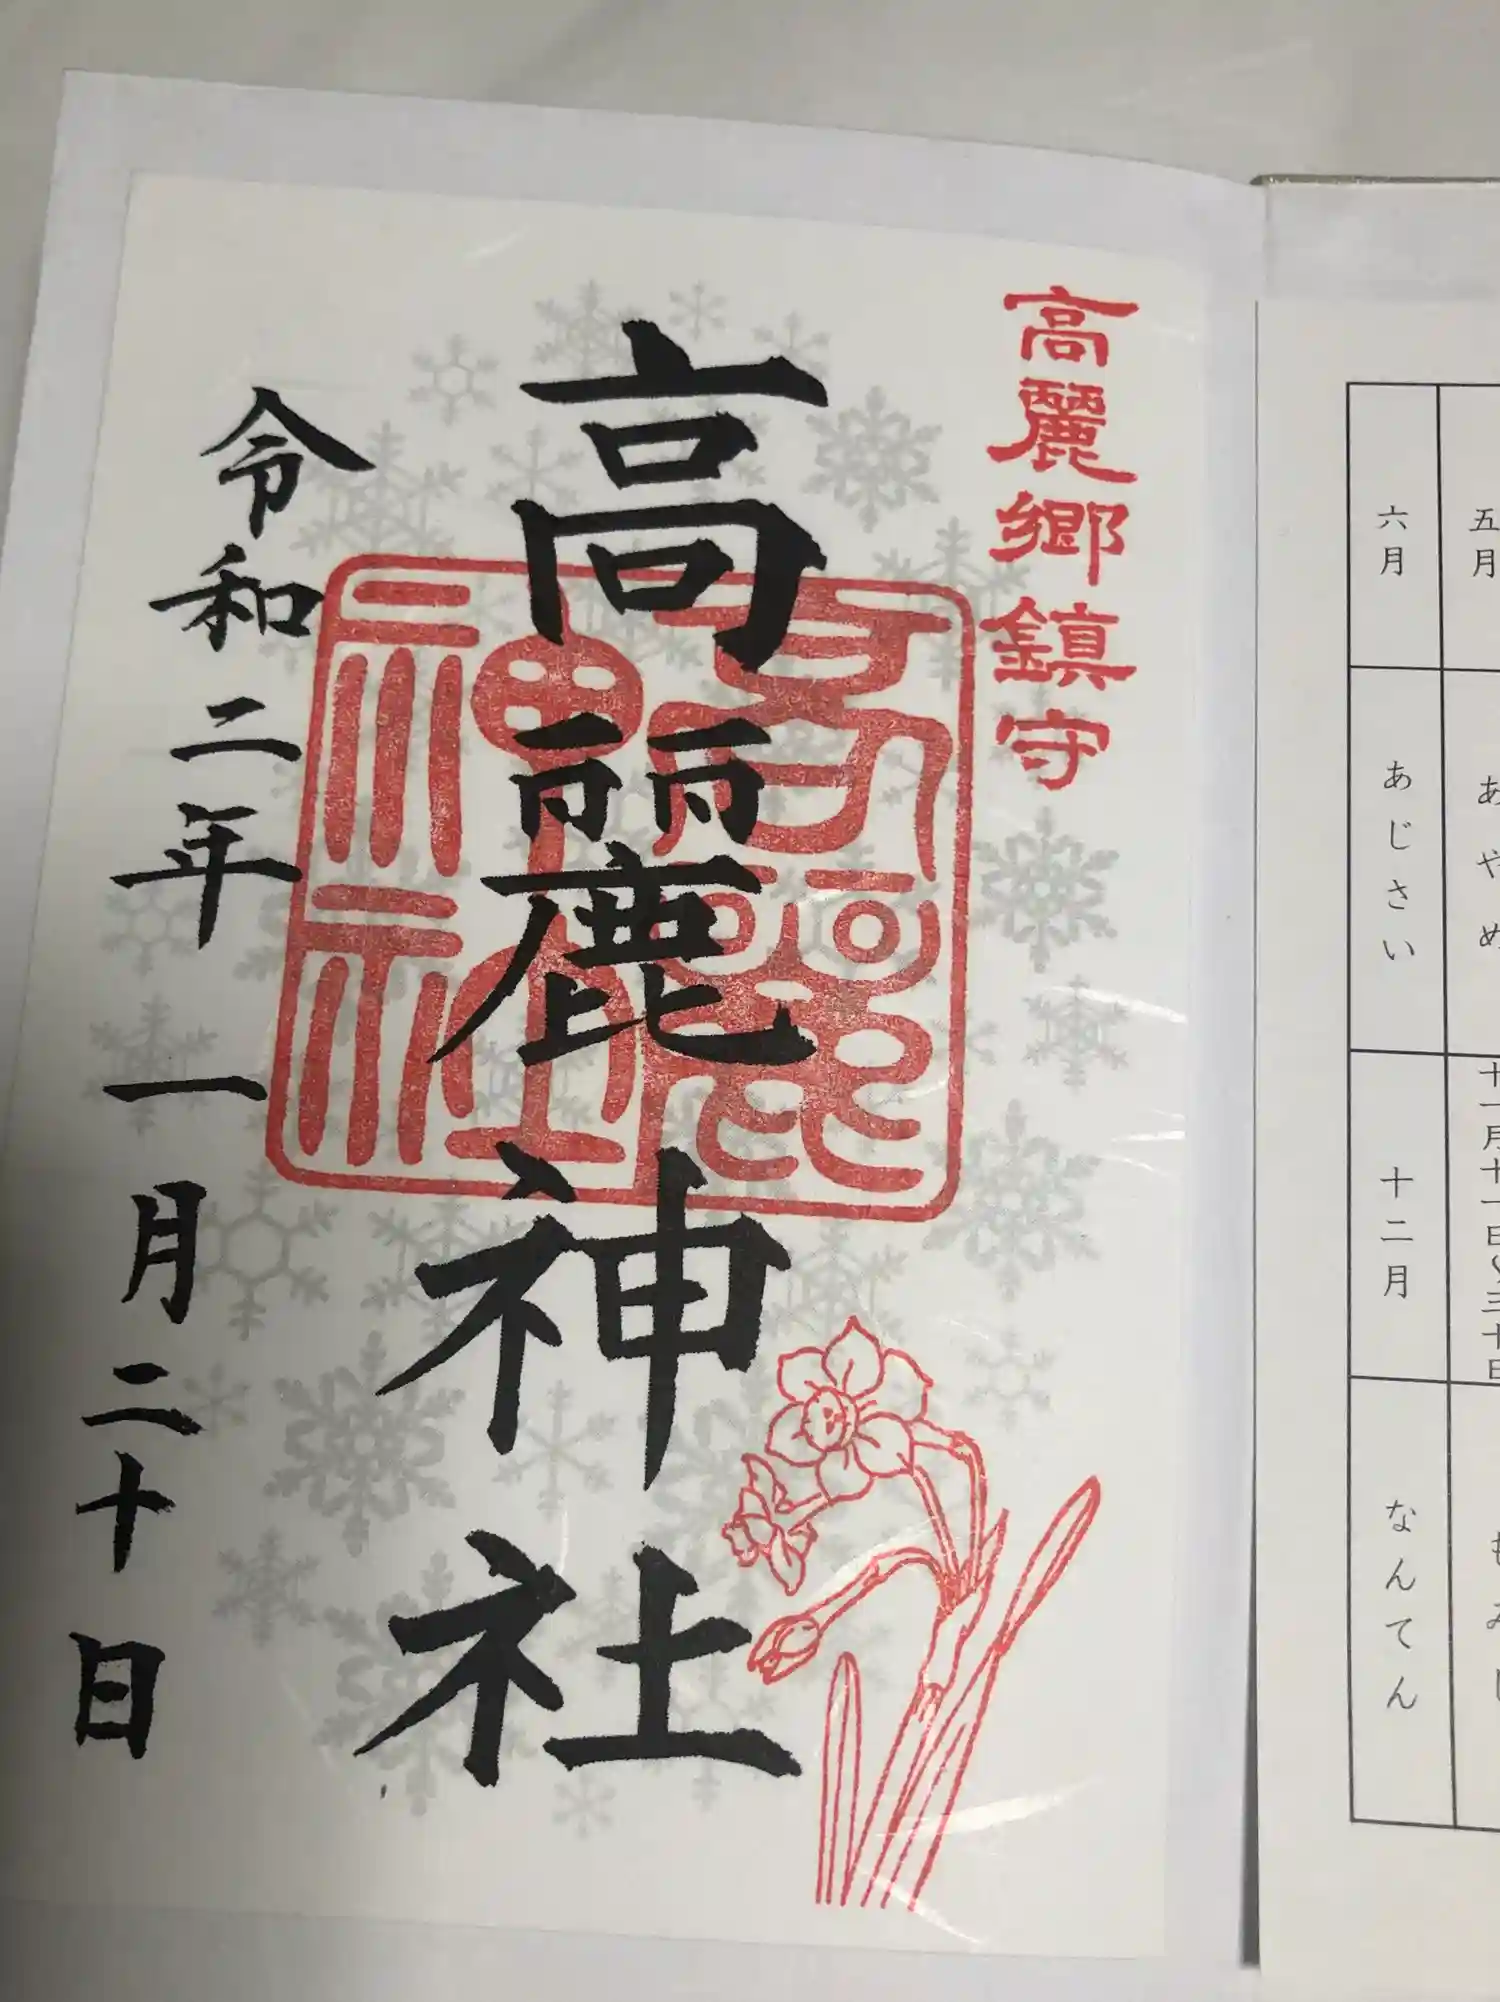 高麗郷鎮守
高麗神社
高麗神社
令和二年一月二十日
五月
あやめ
十一月十一日〜三十日
もみじ
六月
あじさい
十二月
なんてん